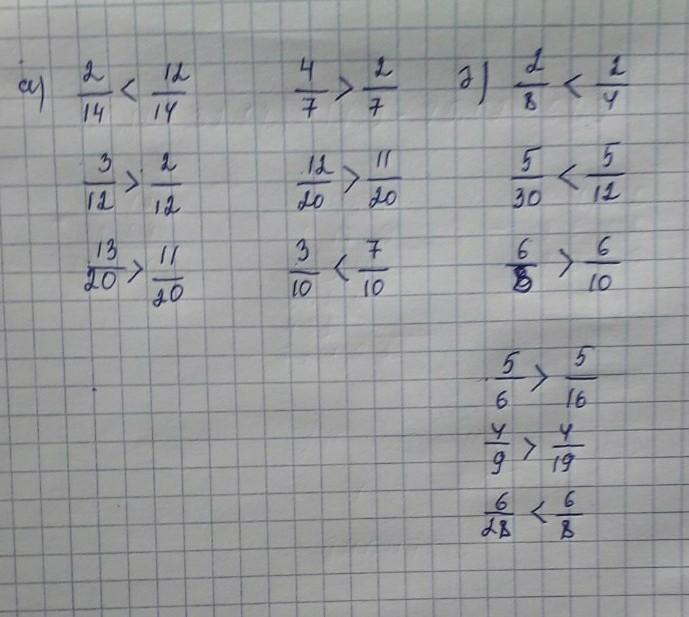 а) 2/14 < 12/14   4/7 > 2/7   д) 2/8 < 2/4
3/12 > 2/12   12/20 > 11/20   5/30 < 5/12
13/20 > 11/20   3/10 < 7/10   6/8 > 6/10
5/6 > 5/16
4/9 > 4/19
6/28 < 6/8